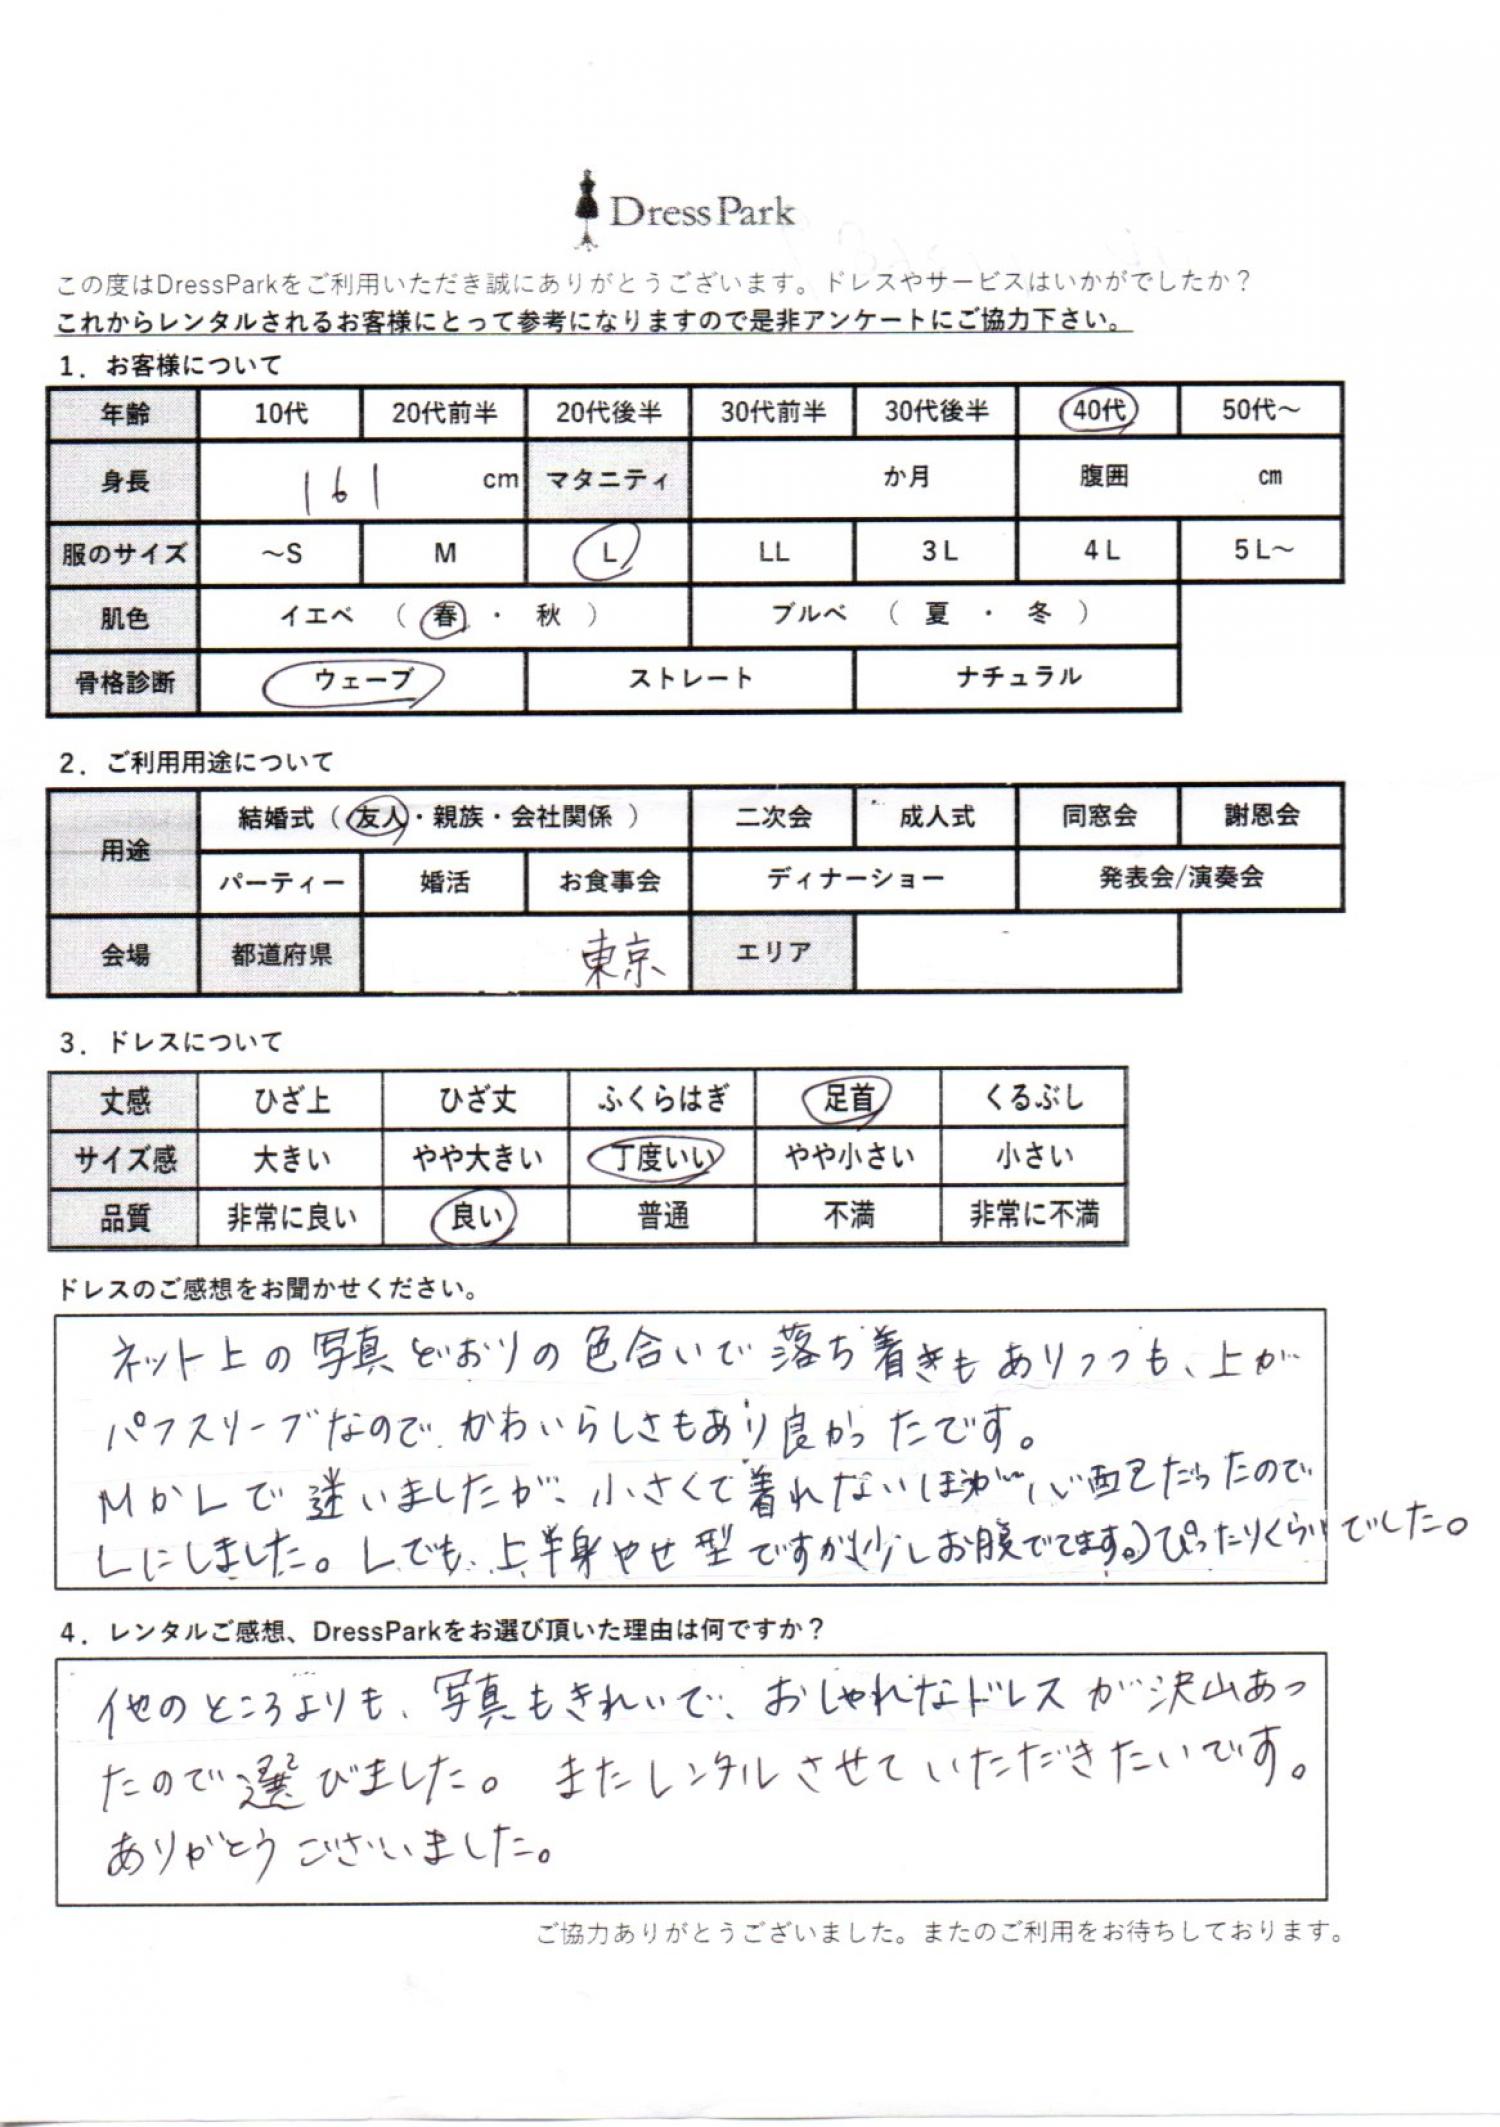 DressPark
この度はDressParkをご利用いただき誠にありがとうございます。ドレスやサービスはいかがでしたか？
これからレンタルされるお客様にとって参考になりますので是非アンケートにご協力下さい。
1．お客様について
年齢 10代 20代前半 20代後半 30代前半 30代後半 40代 50代～
身長 161 cm マタニティ か月 腹囲 ㎝
服のサイズ ～S M L LL 3L 4L 5L～
肌色 イエベ （ 春 ・ 秋 ） ブルベ （ 夏 ・ 冬 ）
骨格診断 ウェーブ ストレート ナチュラル
2．ご利用用途について
用途 結婚式（ 友人・親族・会社関係 ） 二次会 成人式 同窓会 謝恩会
パーティー 婚活 お食事会 ディナーショー 発表会/演奏会
会場 都道府県 東京 エリア
3．ドレスについて
丈感 ひざ上 ひざ丈 ふくらはぎ 足首 くるぶし
サイズ感 大きい やや大きい 丁度いい やや小さい 小さい
品質 非常に良い 良い 普通 不満 非常に不満
ドレスのご感想をお聞かせください。
ネット上の写真どおりの色合いで落ち着きもありつつも、上が
パフスリーブなので、かわいらしさもあり良かったです。
MかLで迷いましたが、小さくて着れないほうが心配だったので
Lにしました。Lでも、上半身やせ型ですが(少しお腹でてます。)ぴったりくらいでした。
4．レンタルご感想、DressParkをお選び頂いた理由は何ですか？
他のところよりも、写真もきれいで、おしゃれなドレスが沢山あっ
たので選びました。またレンタルさせていただきたいです。
ありがとうございました。
ご協力ありがとうございました。またのご利用をお待ちしております。